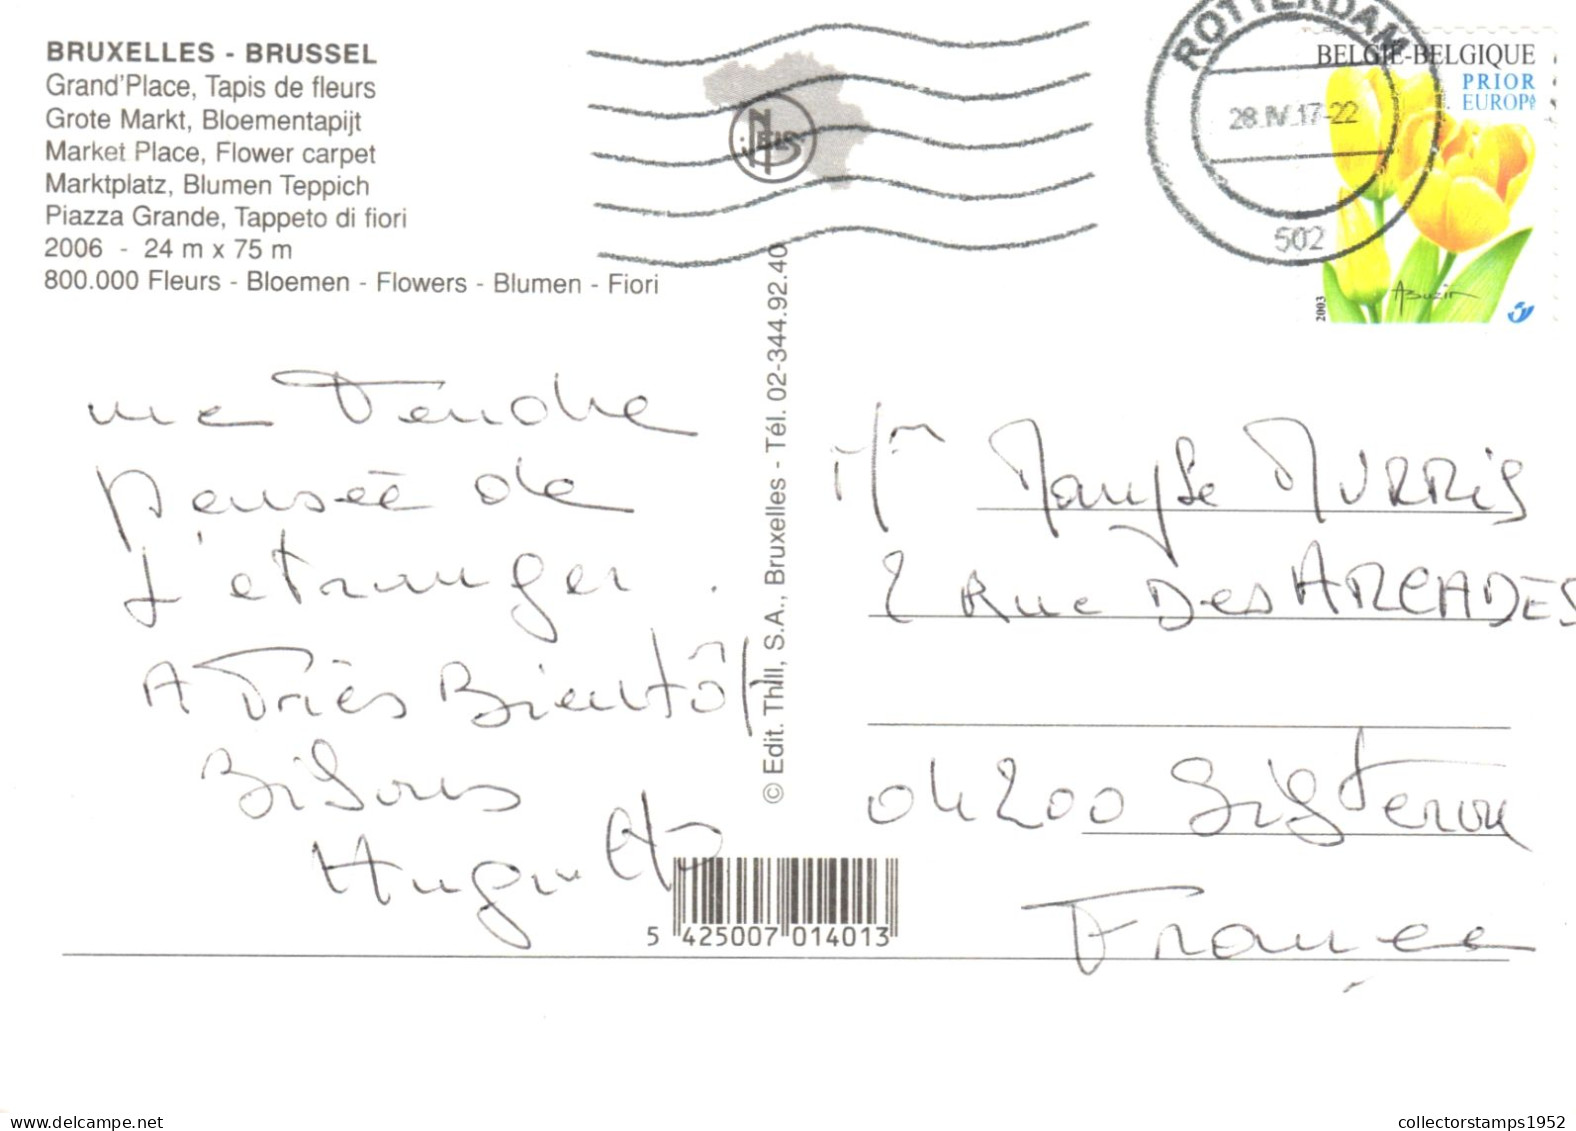 BRUXELLES - BRUSSEL
Grand'Place, Tapis de fleurs
Grote Markt, Bloementapijt
Market Place, Flower carpet
Marktplatz, Blumen Teppich
Piazza Grande, Tappeto di fiori
2006 - 24 m x 75 m
800.000 Fleurs - Bloemen - Flowers - Blumen - Fiori
NELS
ROTTERDAM
28.IV.17-22
502
BELGIË-BELGIQUE
PRIOR
EUROPA
2003
ABuzin
une Tendre
pensée de
L'étranger.
A Très Bientôt
Bisous
Huguette
© Edit. Thill, S.A., Bruxelles - Tél. 02-344.92.40
5 425007 014013
Maryse MURRIS
2 Rue Des ARCADES
04200 SisTeron
France
www.delcampe.net
collectorstamps1952